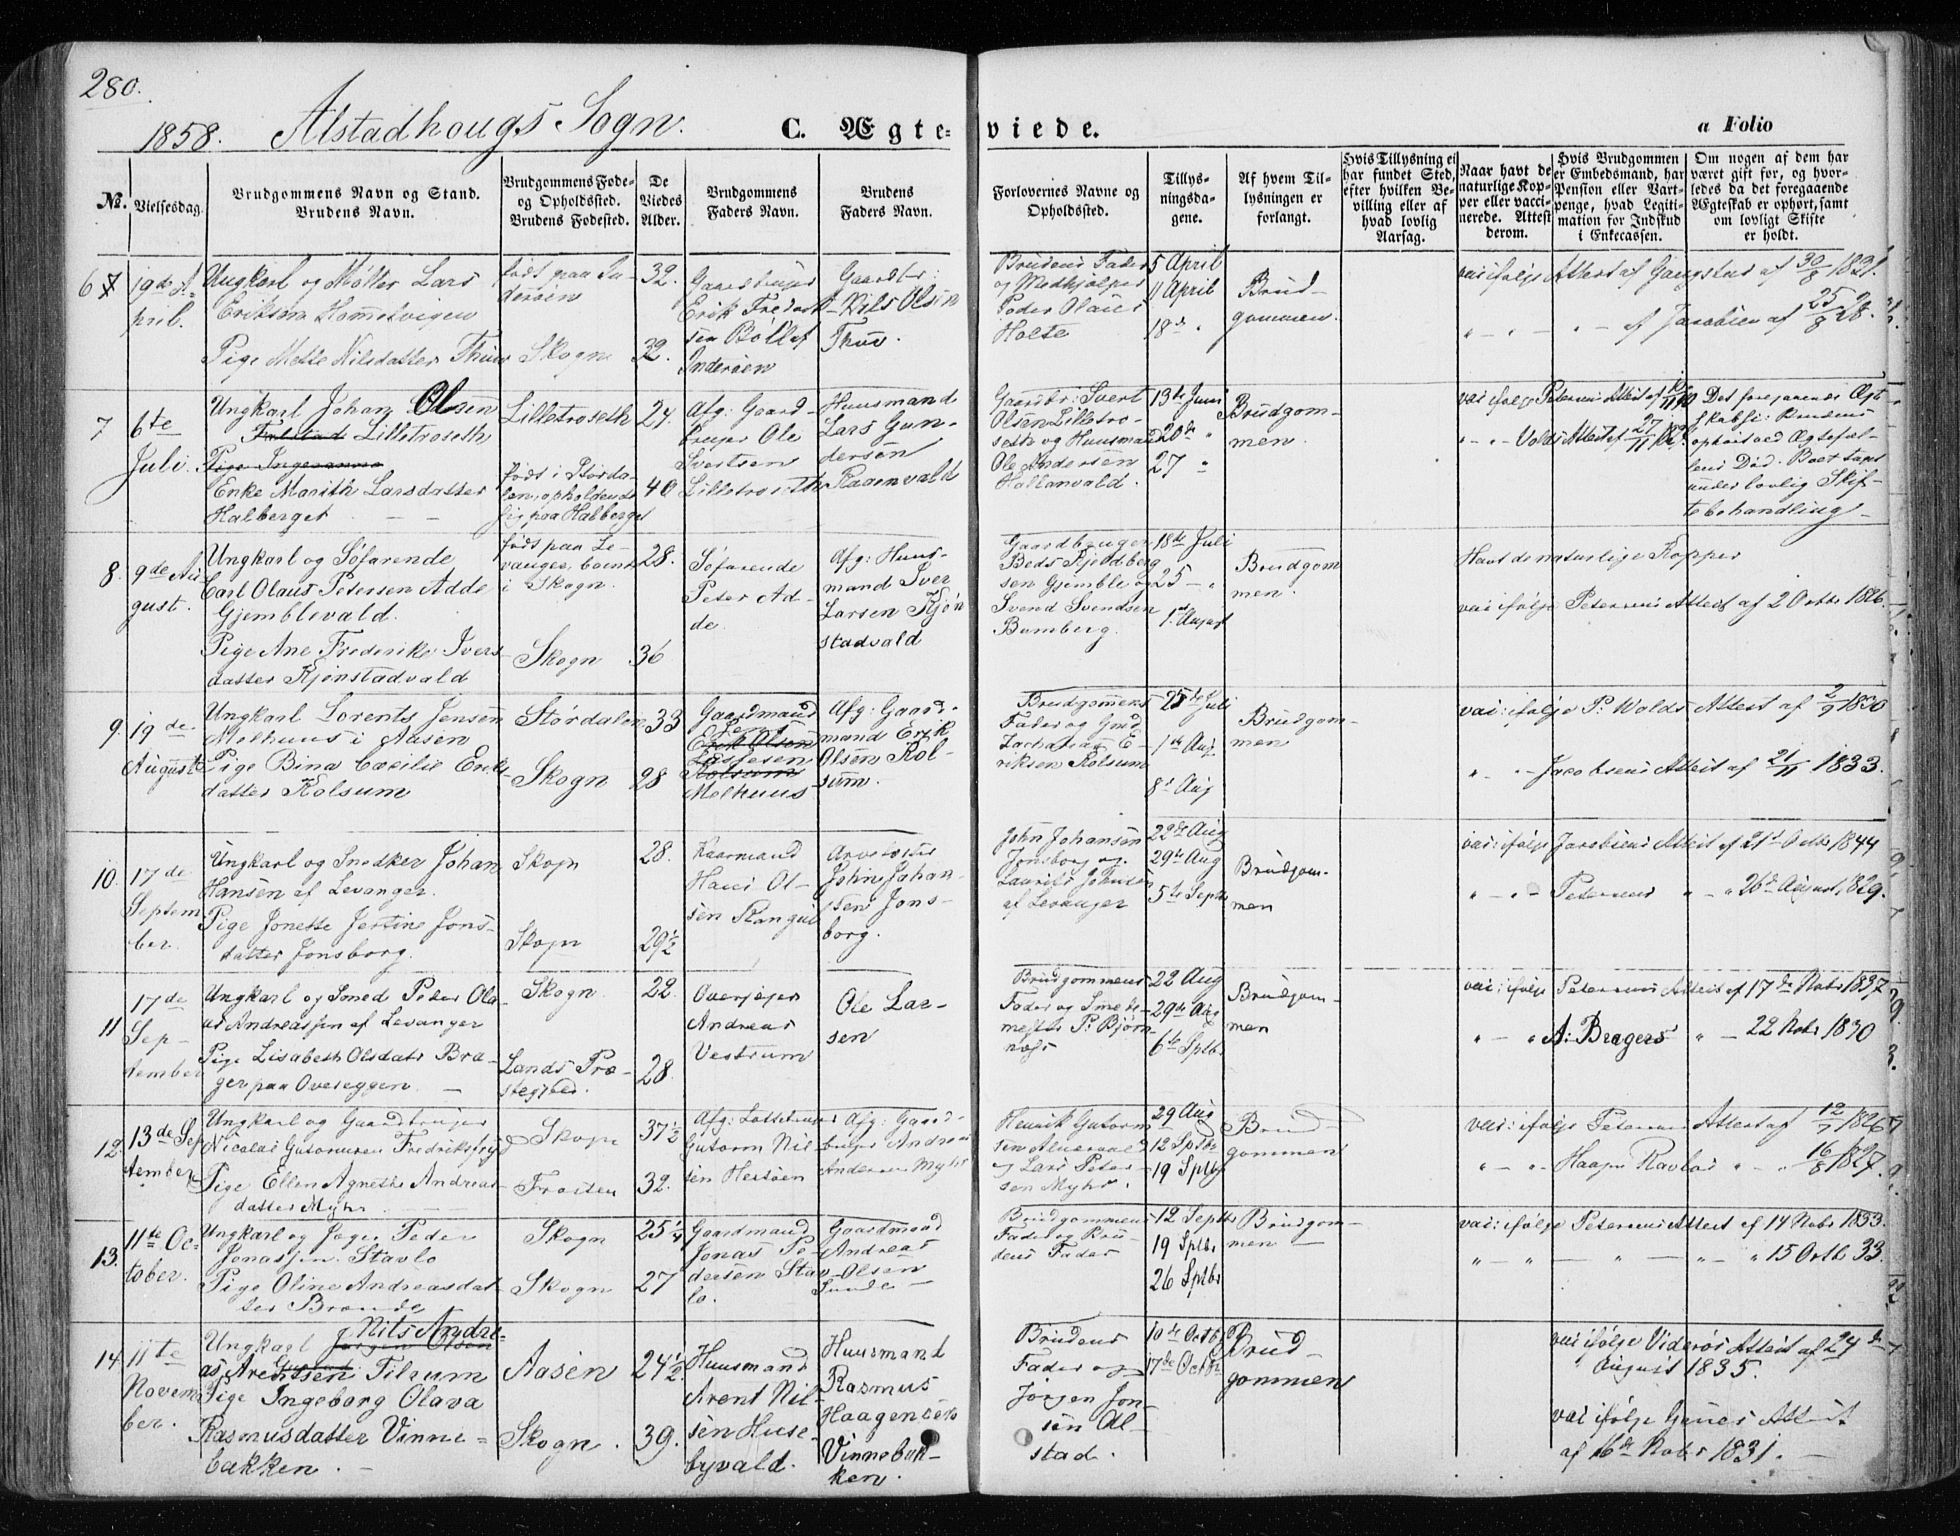 280.
1858. Alstadhougs Sogn. C. Ægteviede. a Folio
No.
Vielsesdag.
Brudgommens Navn og Stand.
Brudens Navn.
Brudgommens Føde-
og Opholdssted.
Brudens Fødested.
De
Viedes
Alder.
Brudgommens
Faders Navn.
Brudens
Faders Navn.
Forlovernes Navne og
Opholdssted.
Tillys-
ningsda-
gene.
Af hvem Til-
lysningen er
forlangt.
Hvis Tillysning ei
har fundet Sted,
efter hvilken Be-
villing eller af
hvad lovlig
Aarsag.
Naar havt de
naturlige Kop-
per eller vacci-
nerede. Attest
derom.
Hvis Brudgommen
er Embedsmand, har
Pension eller Vart-
penge, hvad Legiti-
mation for Indskud
i Enkecassen.
Om nogen af dem har
været gift før, og hvor-
ledes da det foregaaende
Ægteskab er ophørt, samt
om lovligt Skifte
er holdt.
6
19de A-
pril.
Ungkarl og Møller Lars
Eriksen
Pige Mette Nilsdatter Thue
født paa In-
derøen
Skogn
32.
32.
Gaardbruger
Erik Fredrik-
sen
Inderøen
Gaardbr:
Nils Olsen
Thue
Brudens Fader
og Medhjelper
Peder Olaus
Holte
5 April
11 April
18de "
Brud-
gommen.
vac: ifølge Attest af 30/8 1831.
" - " - af Jacobsen af 25/8 28.
7
6te
Juli.
Ungkarl Johan Olsen
Lilletroseth
Enke Marith Larsdatter
Halberget
Lilletroseth
født i Størda-
len, opholdende
sig paa Halberget
24.
40
Afg: Gaard-
bruger Ole
Svertsen
Lilletroseth
Huusmand
Lars Gun-
dersen
Ragnvald
Gaardbr: Svert
Olsen Lilletro-
seth og Huusmand
Ole Andersen
Hallanvald.
13de Juni
20de "
27 "
Brudgom-
men.
vac: ifølge Petersens Attest af
" - " Volds Attest af
Det foregaaende Ægte-
skab for Brudens
ophørt ved Ægtefæl-
lens Død. Boet taget
under lovlig Skif-
tebehandling
8.
9de Au
gust.
Ungkarl og Søfarende
Carl Olaus Petersen Adde
Gjemblevald.
Pige Ane Frederikke Ivers
datter Kjønstadvald
født paa Le-
vanger, boende
i Skogn.
Skogn
28.
36
Søfarende
Peter Ad-
de.
Afg: Huus-
mand Iver
Larsen Kjøn
stadvald
Gaardbruger
Svend Svendsen
Bamberg.
18de Juli
25 - "
1st August
Brudgom
men.
Havt de naturlige Kopper
vac: ifølge Petersens Attest af 2 Octbr 1826.
9.
19de
August
Ungkarl Lorents Jensen
Melhuus i Aasen
Pige Bina Cæcilie Eriks-
datter Kolsum
Størdalen
Skogn
33
28
Gaardmand
Jens
Erik Olsen
Kolsum
Melhuus
Afg: Gaard-
mand Erik
Olsen Kol-
sum.
Brudgommens
Fader og Gmd
Zacharias E-
riksen Kolsum
25de Juli
1ste Aug
8de Aug
Brudgom-
men
vac: ifølge P: Wolds Attest af 2/9 1830
" - " - Jacobsens Attest af 21/11 1833.
10.
17de
Septem
ber.
Ungkarl og Snedker Johan
Hansen af Levanger.
Pige Jonette Jertin Jons-
datter Jonsborg.
Skogn
Skogn
28.
29½
Hans Ol-
sen
John Johan-
sen Jons-
borg.
John Johansen
Jonsborg og
Laurits Johnsen
af Levanger
22de Aug
29de Aug
5te Septbr
Brudgom-
men
vac: ifølge Jacobsens Attest af 21st Octbr 1844
" - " - Petersens " - " 26de August 1829.
11
17de
Sep-
tember
Ungkarl og Smed Peter Ola
us Andreassen af Levanger
Pige Lisabeth Olsdatr Bra-
ger paa Overeggen.
Skogn.
Lands Præ-
stegjeld.
22.
28.
Overjæger
Andreas
Vestrum
Ole Lar-
sen
Brudgommens
Fader og Smede-
mester P: Bjørn-
næs
22 Aug
29de Aug
6te Sptbr
Brudgom-
men
vac: ifølge Petersens Attest af 17de Novbr 1837
" - " A: Bragers " - 22 Novbr 1830
12.
13de Sep
tember
Ungkarl og Gaardbruger
Nicolai Gutormsen
Pige Ellen Agnethe Andreas
datter Myhr
Skogn
Frosten
37½
32.
Gutorm Nil-
sen Hestøen
Afg: Gaard-
bruger Andreas
Andersen Myhr
Henrik Gutorm
og Lars Peter-
sen Myhr.
29 Aug
12 Sptbr
19 Sptbr
Brud-
gommen
vac: ifølge Petersens Attest af 12/7 1826
" - " - 16/8 1827.
13.
11te Oc-
tober.
Ungkarl og Jæger Peder
Jonassen Stavlo
Pige Oline Andreasdat-
ter Brande
Skogn
Skogn
25¼
27
Gaardmand
Jonas Pe-
dersen Stav-
lo.
Gaardmand
Andreas
Olsen
Sunde
Brudgommens
Fader og Bru-
dens Fader
12 Septbr
19 Sptbr
26 Sptbr
Brudgom-
men
vac: ifølge Petersens Attest af 14 Novbr 1833.
" - " - " - " 15 Octb 33.
14.
11te
Novem
ber.
Ungkarl Jørgen Olsen Nils Andre-
as Arentsen Tilrum
Pige Ingeborg Olava
Rasmusdatter Vinne-
bakken.
Aasen
Skogn.
24½
39.
Huusmand
Arent Nil-
sen Huse-
byvald.
Huusmand
Rasmus
Haagensen
Vinnebak-
ken.
Brudens
Fader og
Jørgen Jon-
sen Al-
stad.
10de Octbr
17de Octbr
Brud-
gommen
vac ifølge Viderøs Attest af 24de
August 1835.
vac ifølge Attest
af 16de Novbr 1831.